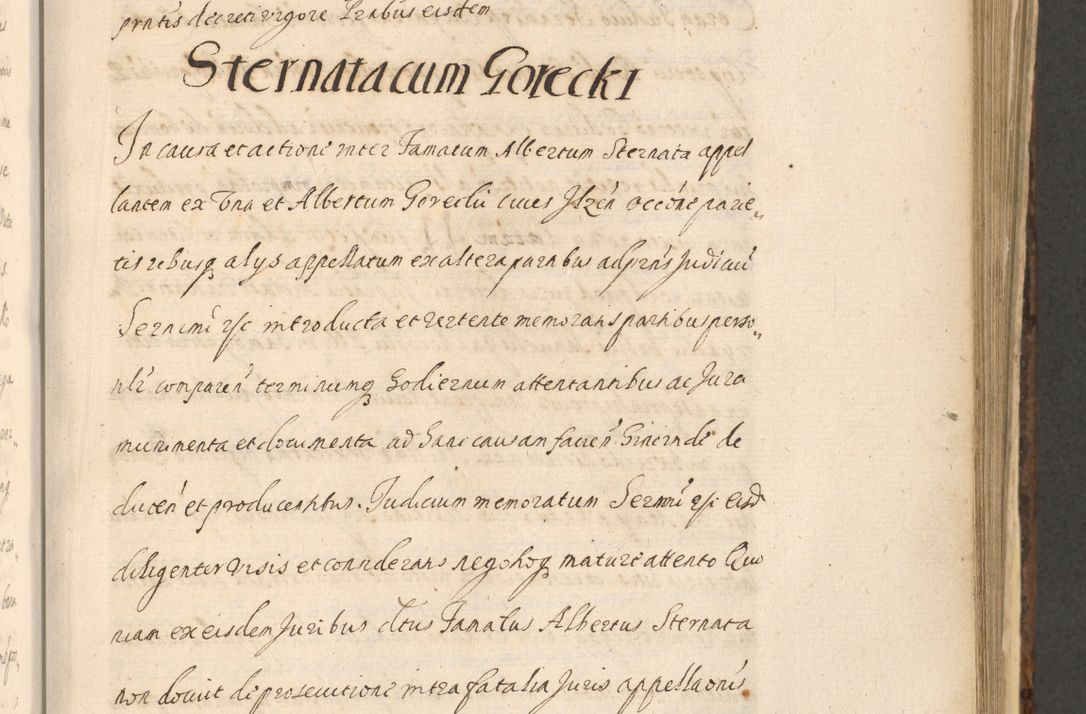 prntis decreti vigore Prabus eisdem
Sternata cum Gorecki
In causa et actione inter Famatum Albertum Sternata appel
lantem ex Una et Albertum Gorecki cives Ilzen occone parie„
tis rebusq alijs appellatum ex altera partibus ad prns Judiciu
Sernimi etc introducta et vertente memoratis partibus perso„
nlr comparen terminumq hodiernum attentantibus ac Jura
munimenta et documenta ad hanc causam facien hincinde de
ducen et producentibus. Judicium memoratum Sernmi etc eisd
diligenter visis et consideratis negotioq mature attento Quo
niam ex eisdem Juribus dtus Famatus Albertus Sternata
non docuit de prosecutione intra fatalia Juris appellaonis